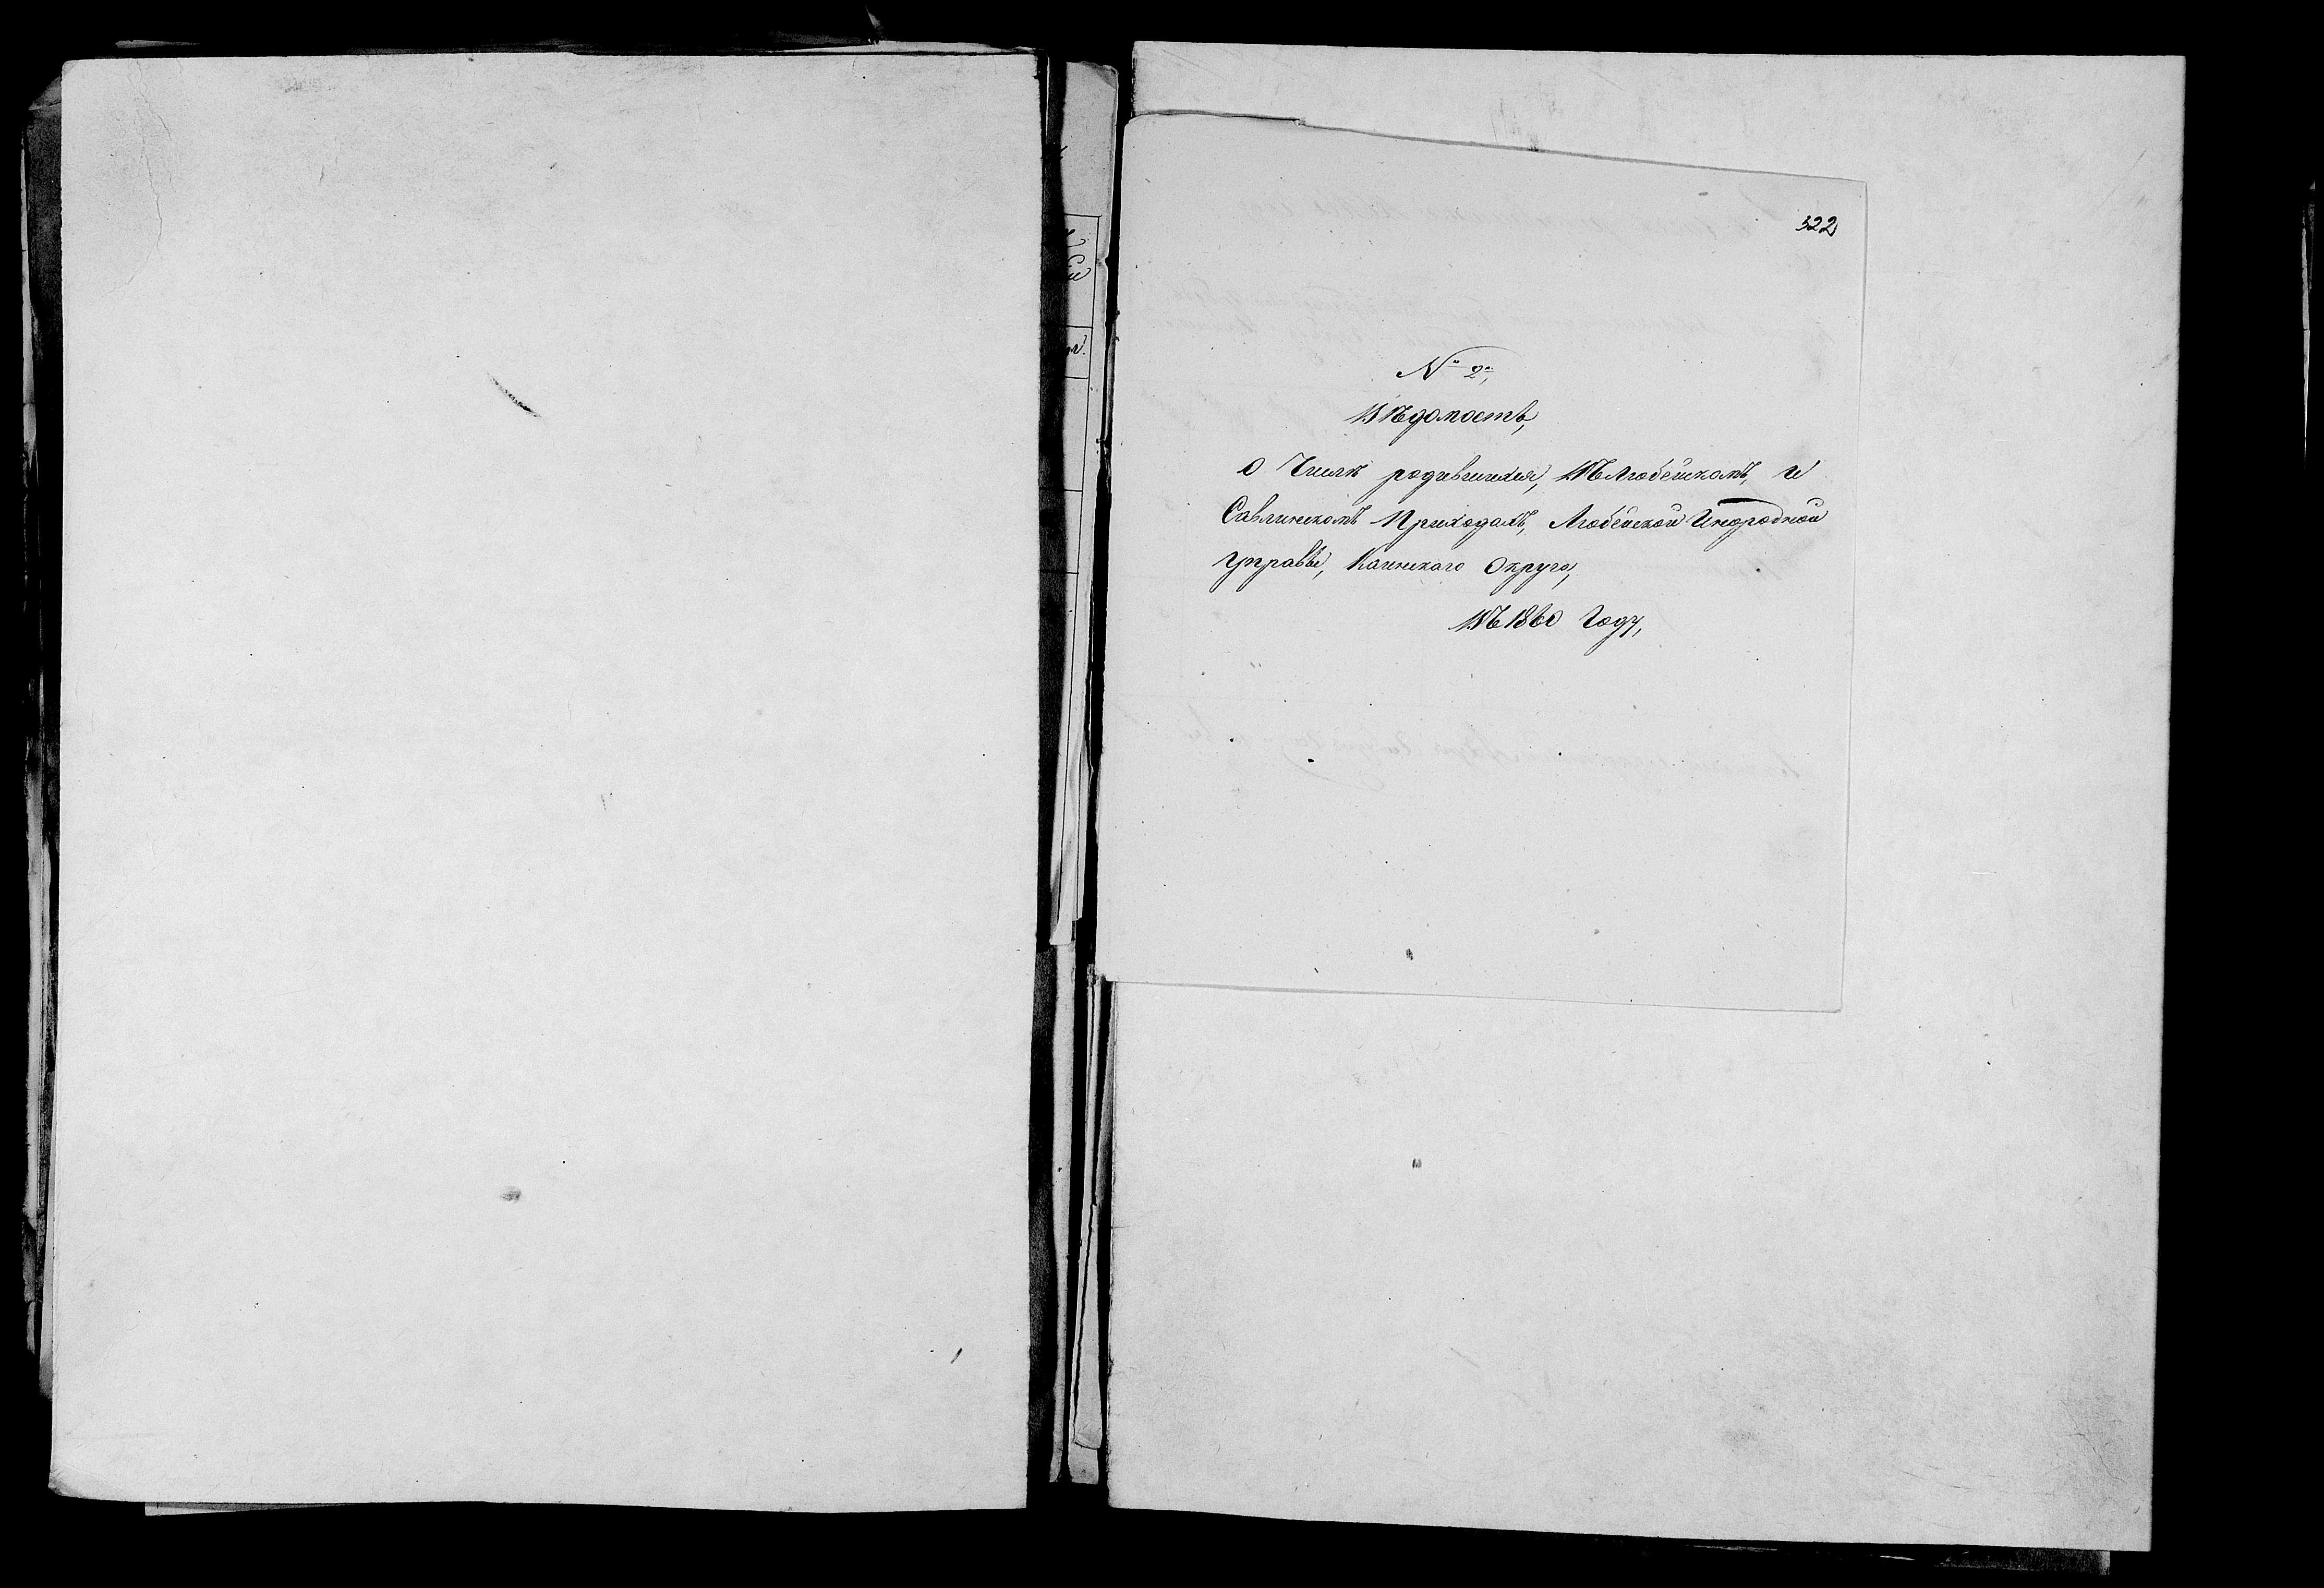 322
№ 2й,
Вѣдомость,
О Числѣ родившихся, Въ Любейскомъ, и
Савлинскомъ Приходахъ, Любейской Инородной
управѣ, Каинскаго Округа,
Въ 1860 Году,